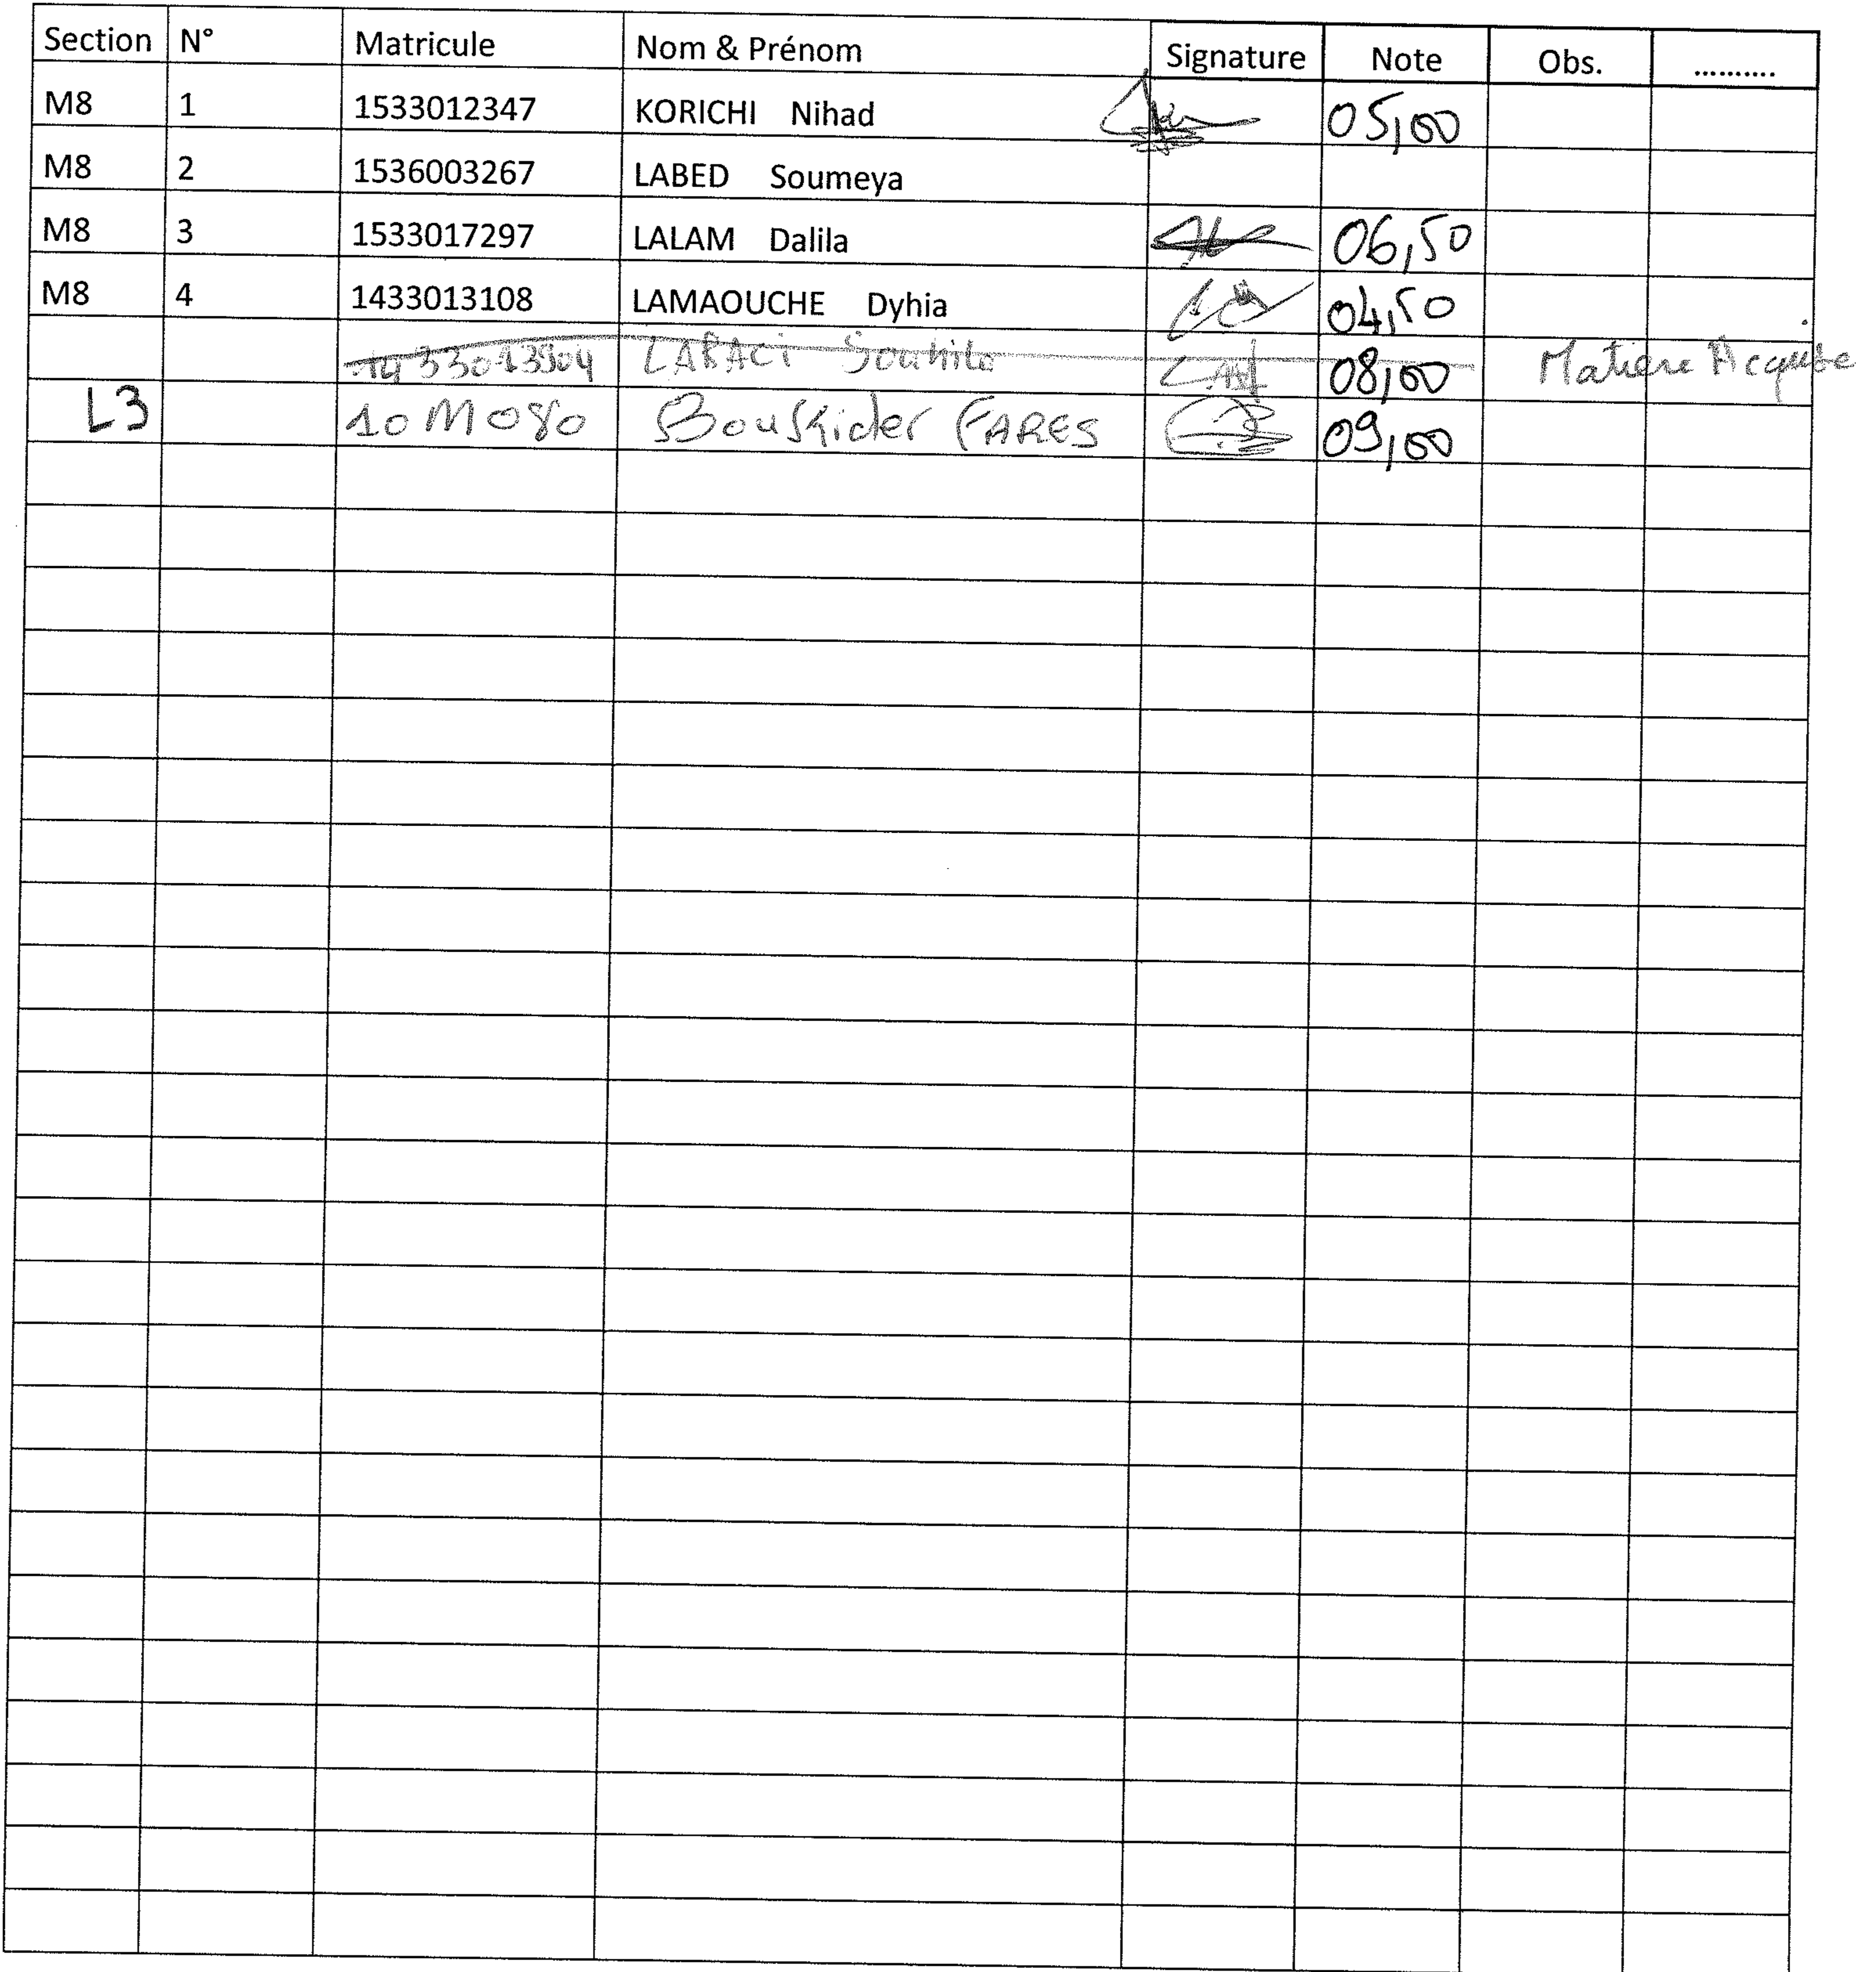 Section N° Matricule Nom & Prénom Signature Note Obs. ..........
M8 1 1533012347 KORICHI Nihad 05,00
M8 2 1536003267 LABED Soumeya
M8 3 1533017297 LALAM Dalila 06,50
M8 4 1433013108 LAMAOUCHE Dyhia 04,50
1433013904 LABACI Souhila 08,00 Matière Acquise
L3 10M080 Bouskider FARES 09,00